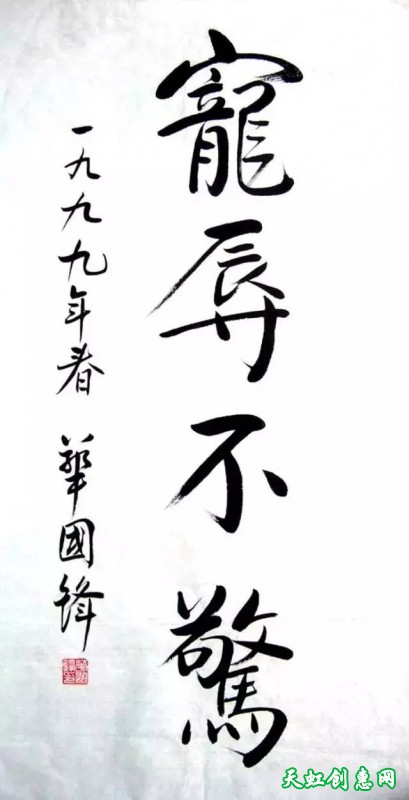 寵辱不驚
一九九九年春 華國鋒
天虹创惠网